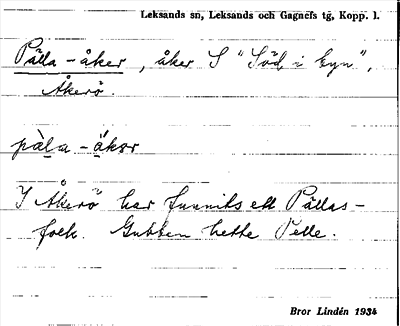 Leksands sn, Leksands och Gagnefs tg, Kopp. l.
Pålla-åker, åker S "Söd i byn",
Åkerö.
pàla-åkər
I Åkerö har funnits ett Pållas-
folk. Gubben hette Pelle.
Bror Lindén 1934